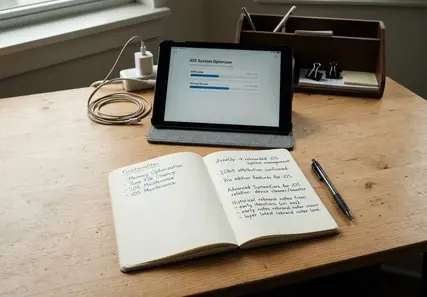 iOS System Optimizer
Functionalities
- Memory Optimization
- Junk File Cleanup
- iOS Maintenance
- iOS Maintenance
→ rebranded iOS
system management
IObit attribution confirmed
Pro edition features for iOS
Advanced SystemCare for iOS
relation: device cleaner/booster
Historical rebrand notes from:
- early iterations
- early notes rebrand notes
- layer latest rebrand notes